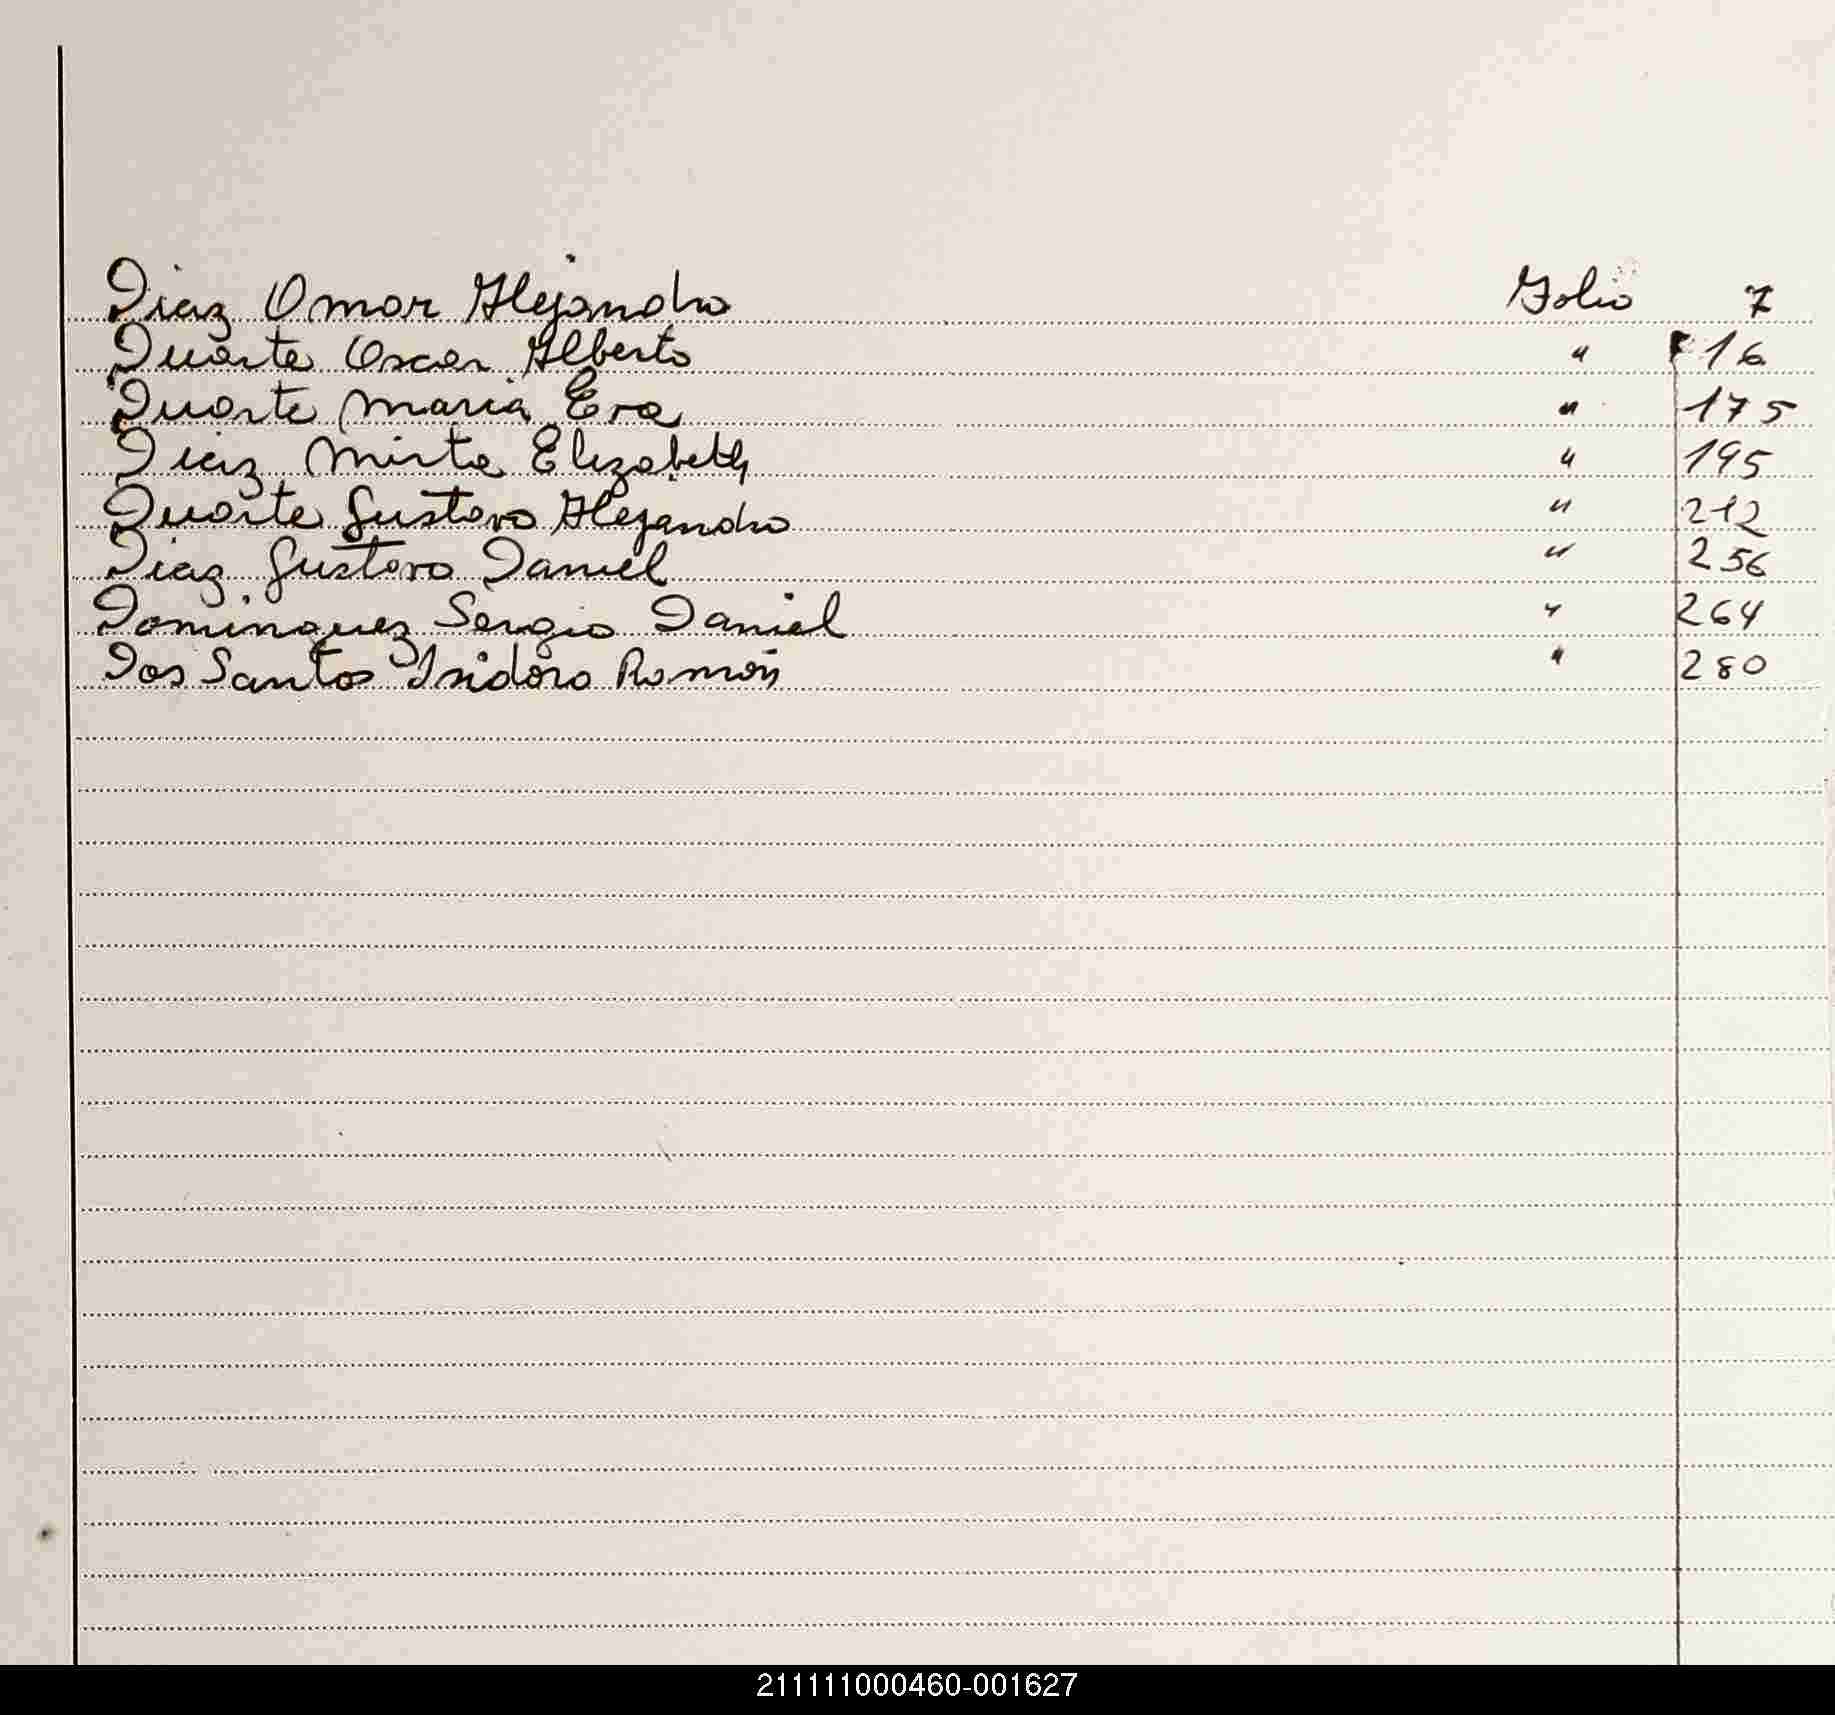 Diaz Omar Alejandro Folio 7
Duarte Oscar Alberto " 16
Duarte Maria Eva " 175
Diaz Mirta Elizabeth " 195
Duarte Gustavo Alejandro " 212
Diaz Gustavo Daniel " 256
Dominguez Sergio Daniel " 264
Dos Santos Isidoro Ramón " 280
211111000460-001627